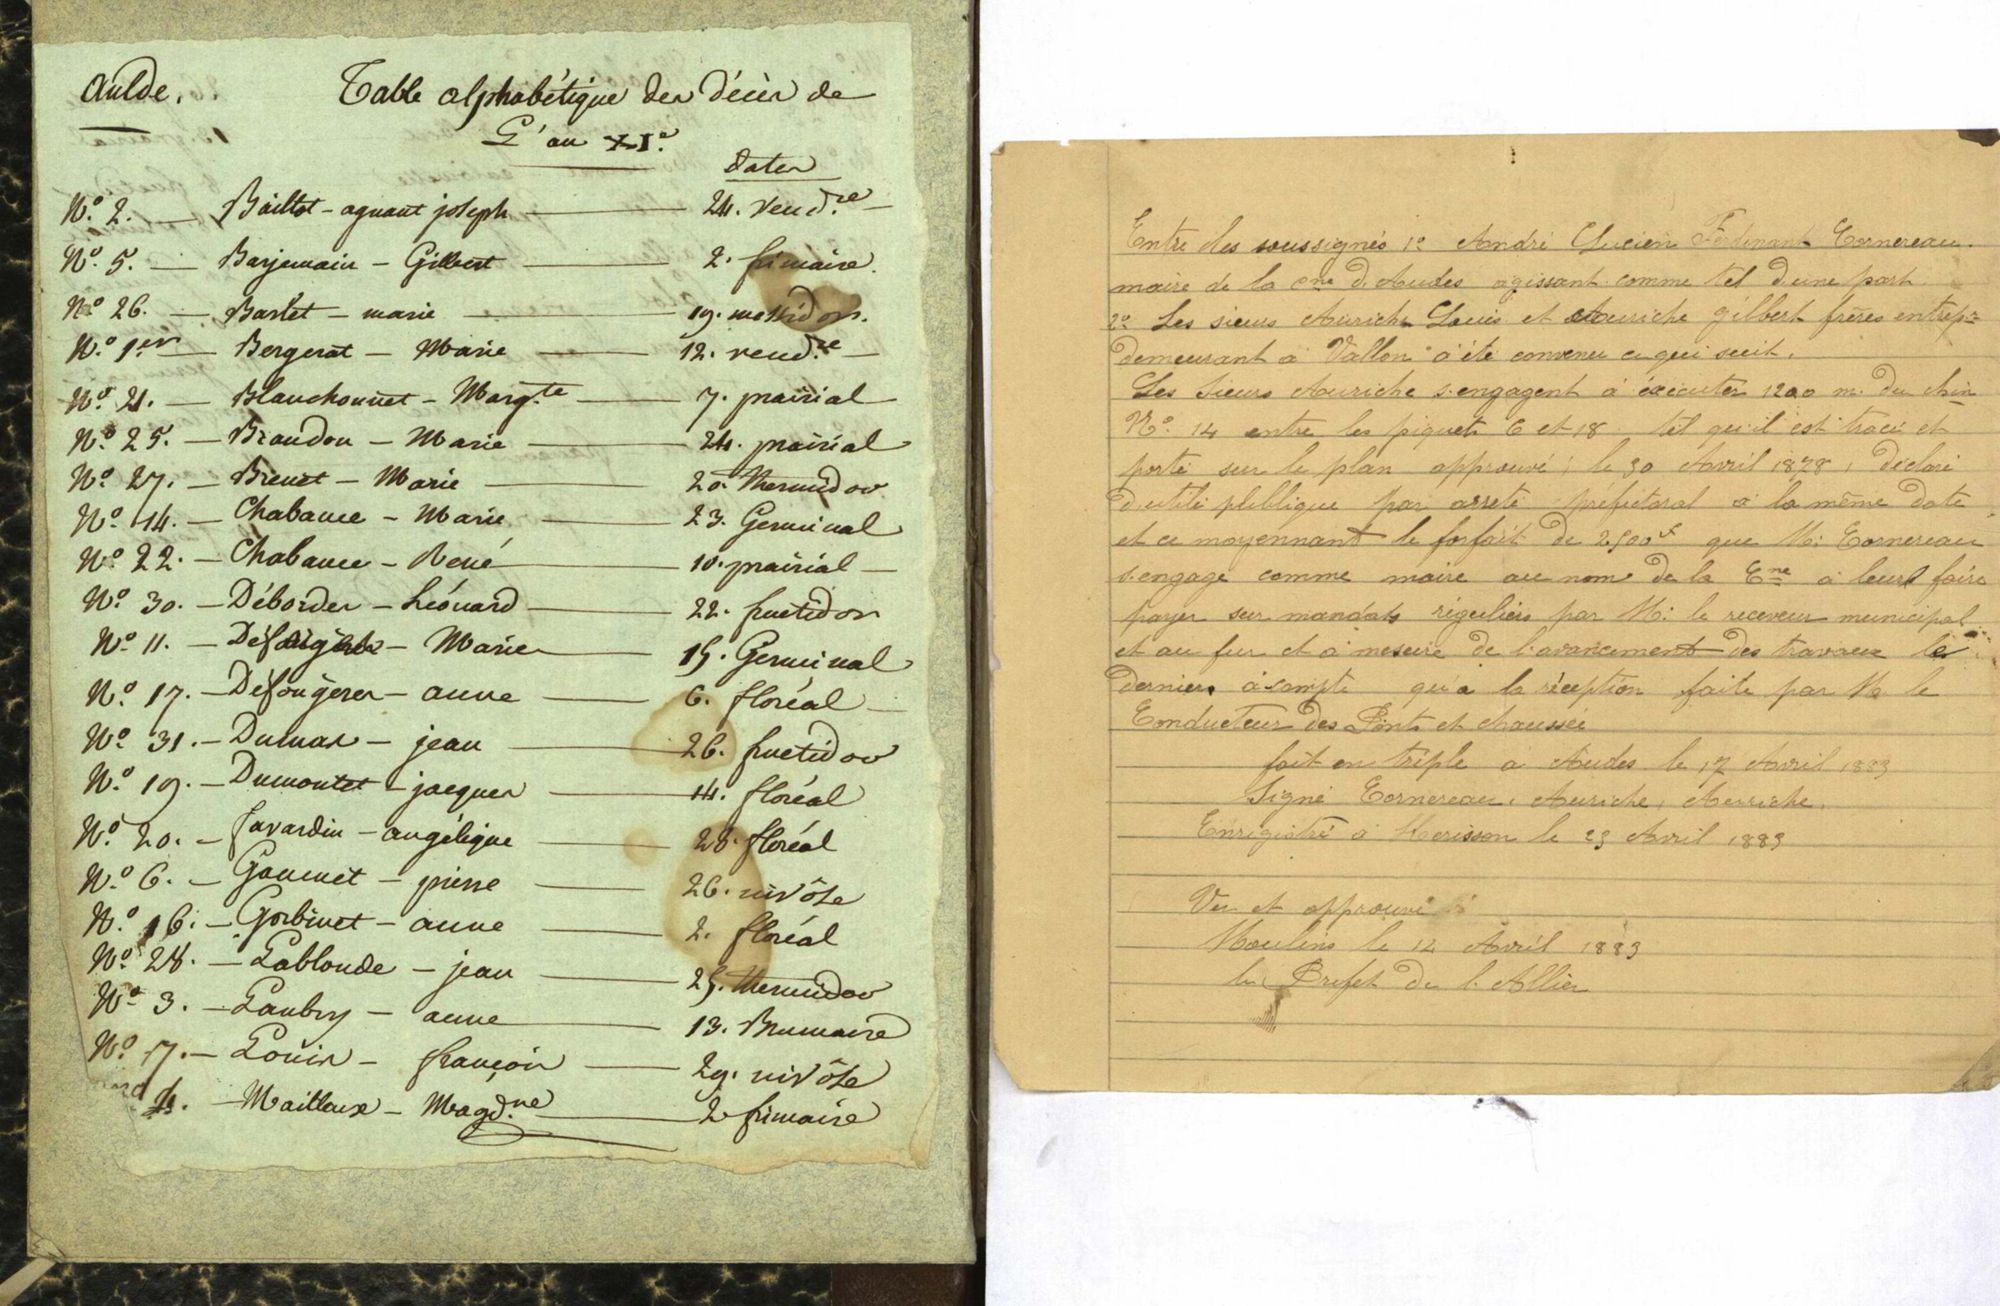 Aulde.
Table alphabétique des décès de
L'an XI.e
dates
N.o 2. — Baillot - agnant joseph — 24. vend.re —
N.o 5. — Barjemain - Gilbert — 2. frimaire.
N.o 26. — Barlet - marie — 19. messidor.
N.o 1er — Bergerat - Marie — 12. vend.re —
N.o 21. — Blanchonnet - Marg.te — 7. prairial
N.o 25. — Brandon - Marie — 24. prairial
N.o 27. — Brenet - Marie — 20. thermidor
N.o 14. — Chabance - Marie — 23. Germinal
N.o 22. — Chabance - René — 10. prairial —
N.o 30. — Débordes - Léonard — 22. fructidor
N.o 11. — - Marie — 15. Germinal
N.o 17. — Défougeres - anne — 6. floréal —
N.o 31. — Dumas - jean — 26. fructidor
N.o 19. — Dumontet - jacques — 14. floréal
N.o 20. — favardin - angélique — 28. floréal
N.o 6. — - pierre — 26. nivôse
N.o 16. — Gorbinet - anne — 2. floréal
N.o 28. — Lablonde - jean — 25. thermidor
N.o 3. — Laubry - anne — 13. Brumaire
N.o 7. — Louis - françois — 29. nivôse
4. — Maillaux - Magd.ne — 2 frimaire
Entre les soussignés 1o André Lucien Ferdinant Cornereau.
maire de la cne d'Audes agissant comme tel d'une part.
2o Les sieurs Auriche Louis et Auriche gilbert frères entrepr
demeurant à Vallon a été convenu ce qui suit.
Les Sieurs Auriche s'engagent à éxécuter 1200 m. du chin
No 14 entre les piquets 6 et 18 tel qu'il est tracé et
porté sur le plan approuvé, le 30 Avril 1878, déclaré
d'utilé plublique par arreté préfectoral à la même date
et ce moyennant le forfait de 2500f que M. Cornereau
s'engage comme maire au nom de la Cne à leurs faire
payer sur mandats réguliers par M. le receveur municipal
et au fur et à mesure de l'avancement des travaux le
derniers àcompte qu'à la réception faite par M le
Conducteur des Ponts et chaussée
fait en triple a Audes le 17 Avril 1883
Signé Cornereau, Auriche, Auriche.
Enrigistré à Herisson le 23 Avril 1883
Vu et approuvé
Moulins le 12 Avril 1883
le Préfet de l'Allier